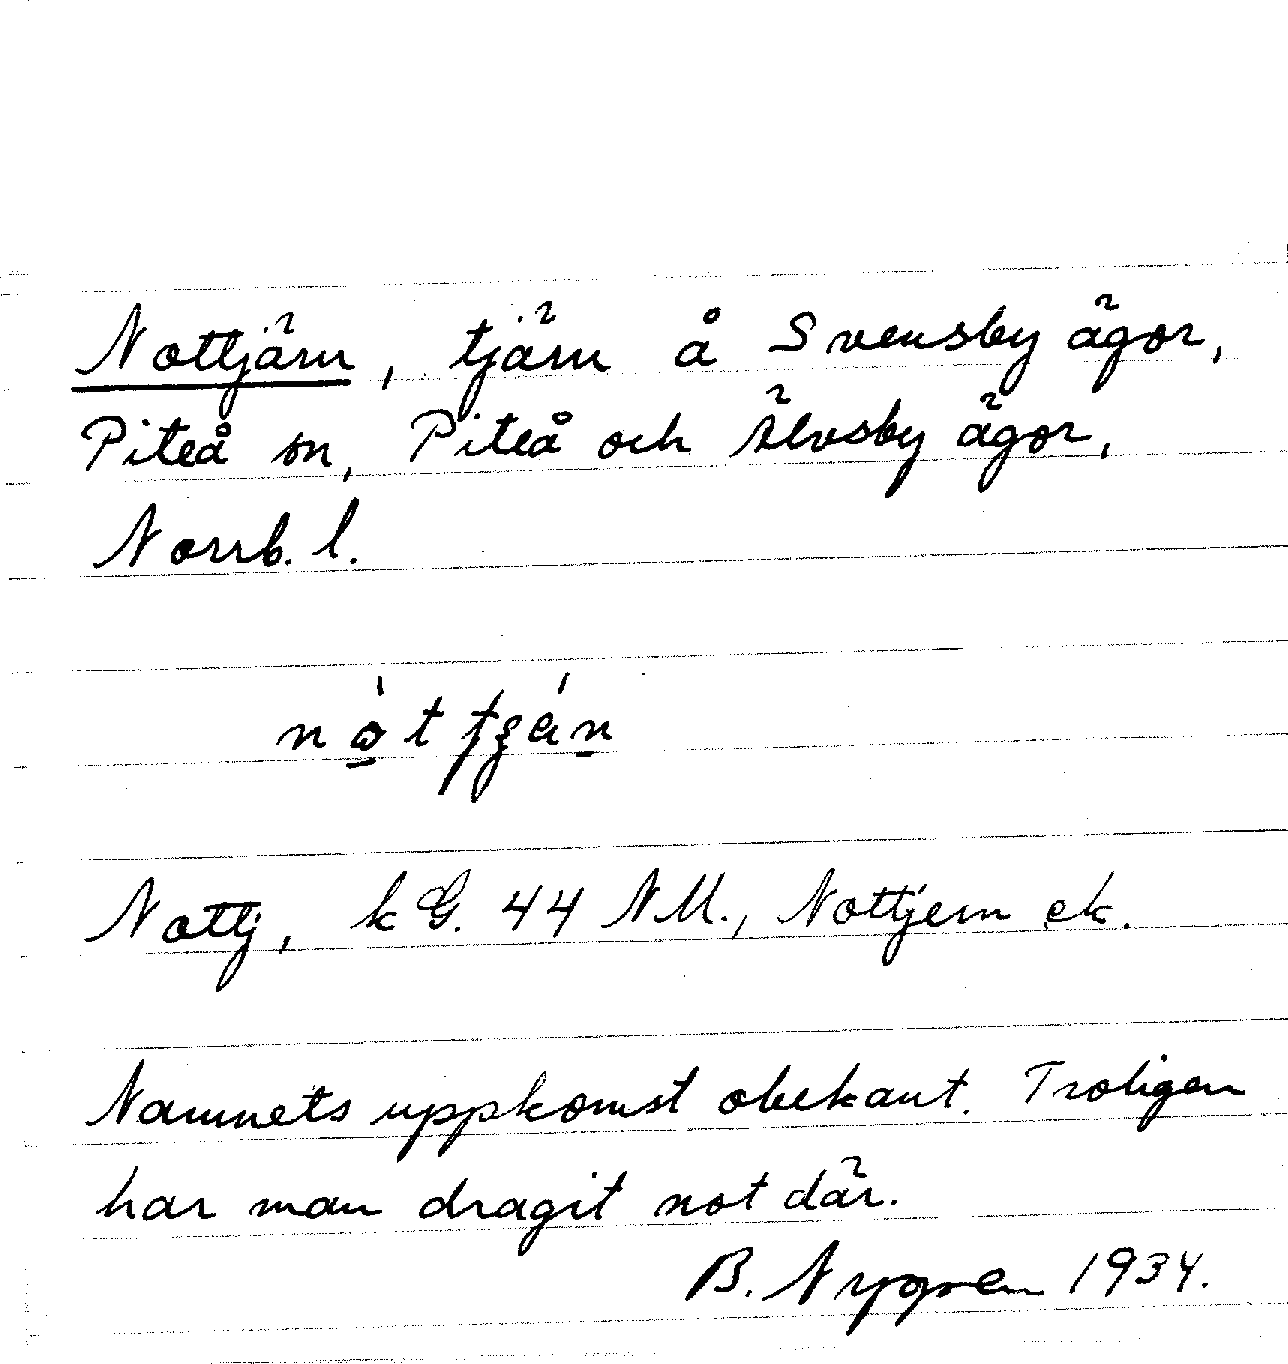 Nottjärn, tjärn å Svensby ägor,
Piteå sn, Piteå och Älvsby ägor,
Norrb. l.
Nottj, k G. 44 NM., Nottjern ek.
Namnets uppkomst obekant. Troligen
har man dragit not där.
B. Nygren 1934.